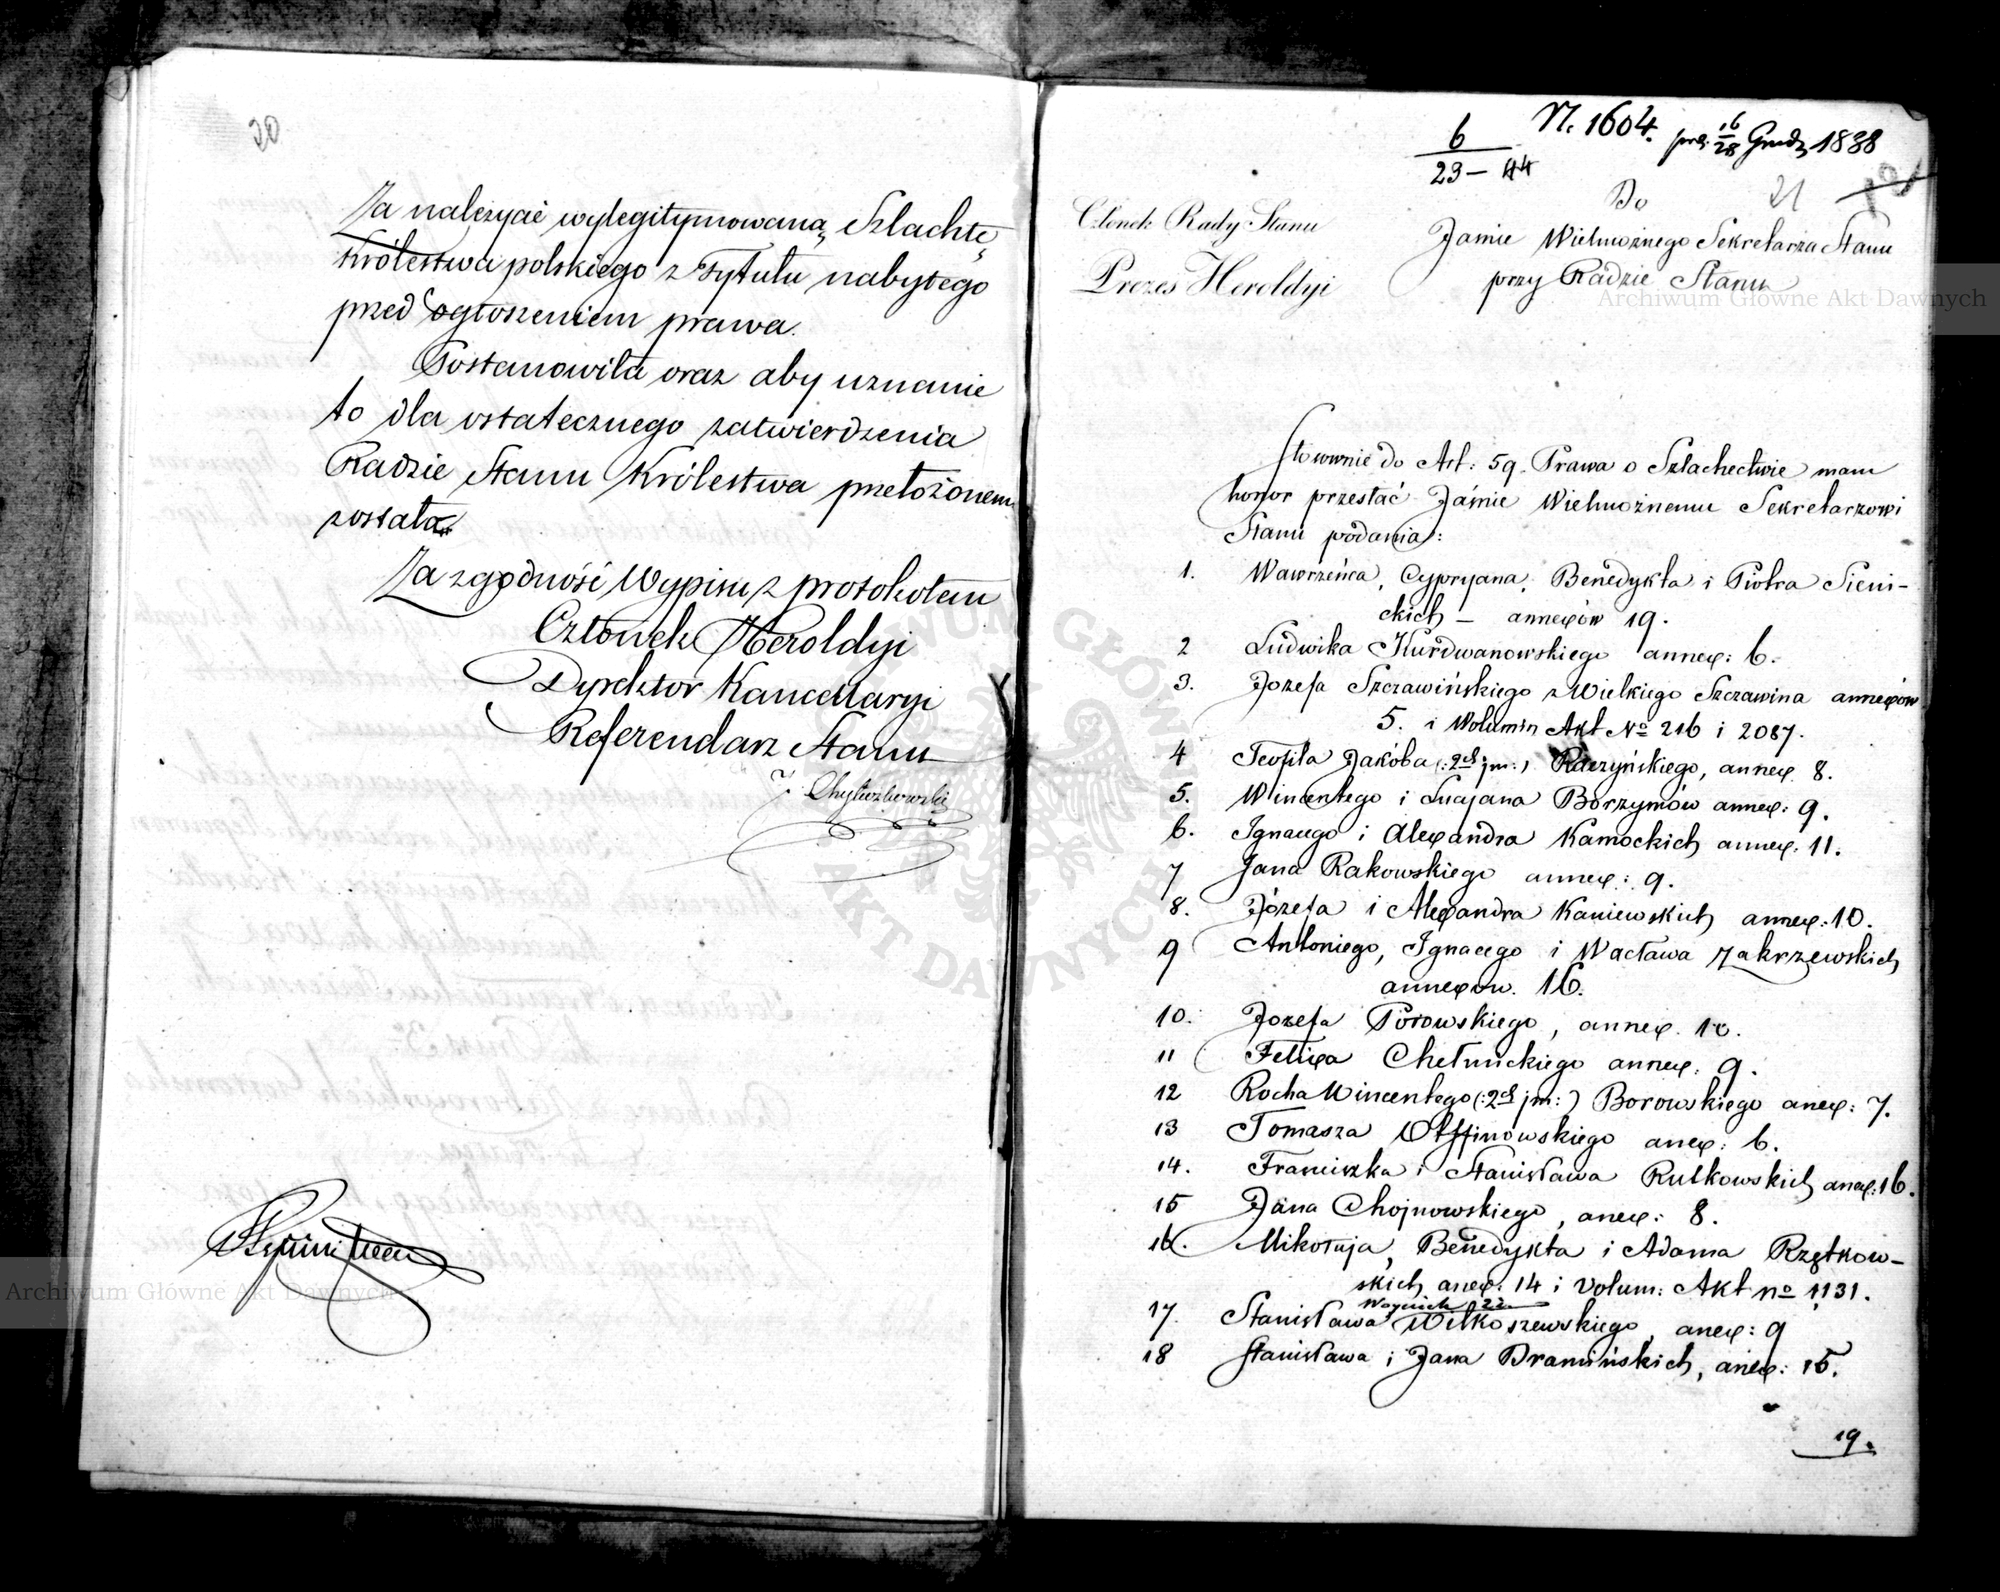 20
Za należycie wylegitymowaną Szlachtę
Królestwa polskiego z Tytułu nabytego
przed ogłoszeniem prawa.
Postanowiła oraz aby uznanie
to dla ostatecznego zatwierdzenia
Radzie Stanu Królestwa przełożonem
została
Za zgodność Wypisu z protokołem
Członek Heroldyi
Dyrektor Kancellaryi
Referendarz Stanu
N. 1604. pres. 16/28 Grudz 1838
6
23 – 44
21
Członek Rady Stanu
Prezes Heroldyi
Do
Jaśnie Wielmożnego Sekretarza Stanu
przy Radzie Stanu
Stownie do Art: 59. Prawa o Szlachectwie mam
honor przesłać Jaśnie Wielmożnemu Sekretarzowi
Stanu podania:
1. Wawrzeńca, Cypryana, Benedykta i Piotra Sieni-
ckich – annexów 19.
2 Ludwika Kurdwanowskiego annex: 6.
3. Jozefa Szczawińskiego z Wielkiego Szczawina annexów
5. i Wolumin Akt No 216 i 2087.
4 Teofila Jakóba (:2ch jm:) Raczyńskiego, annex 8.
5. Wincentego i Lucjana Borzymów annex: 9.
6. Ignacego i Alexandra Kamockich annex: 11.
7 Jana Rakowskiego annex: 9.
8. Józefa i Alexandra Kaniewskich annex: 10.
9 Antoniego, Ignacego i Wacława Zakrzewskich
annexów. 16.
10. Jozefa Porowskiego, annex. 10.
11 Felixa Chełmickiego annex: 9.
12 Rocha Wincentego (:2ch jm:) Borowskiego anex: 7.
13 Tomasza Otffinowskiego anex: 6.
14. Franciszka i Stanisława Rutkowskich anex: 16.
15 Jana Chojnowskiego, anex: 8.
16. Mikołaja, Benedykta i Adama Rzętkow-
skich anex: 14 i Volum: Akt no 1131.
17. Stanisława Wilkoszewskiego, anex: 9
18 Stanisława i Jana Dramińskich, anex: 15.
19.
Archiwum Główne Akt Dawnych
Archiwum Główne Akt Dawnych
ARCHIWUM GŁÓWNE AKT DAWNYCH